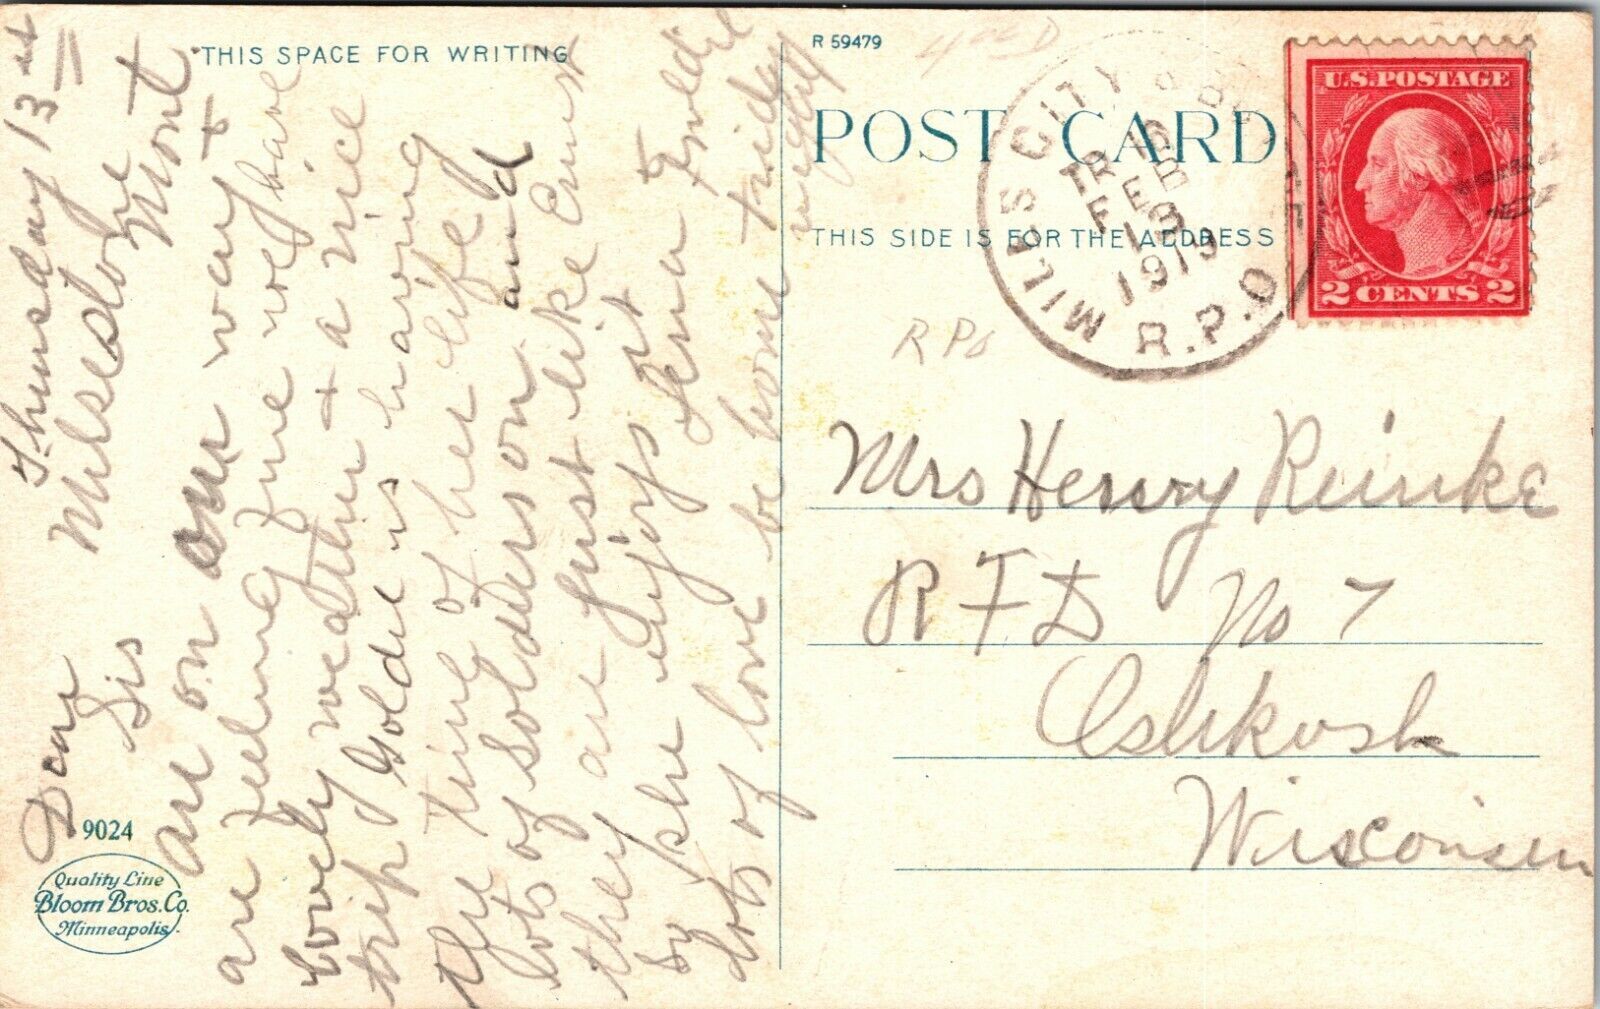 THIS SPACE FOR WRITING
Thursday 13th
Milsestone Mont
Dear Sis
are on our way &
are feeling fine we have
lovely weather & a nice
trip Goldie is having
the time of her life
lots of Solders on and
they are just like Ernst
So she enjoys it
Lena & Goldie
lots of love be home friday
night
9024
Quality Line
Bloom Bros. Co.
Minneapolis
R 59479
POST CARD
THIS SIDE IS FOR THE ADDRESS
MILES CITY
TR 16
FEB
13
1919
R.P.O
U.S. POSTAGE
2 CENTS 2
R P O
Mrs Henry Reinke
R F D No 7
Oshkosh
Wisconsin